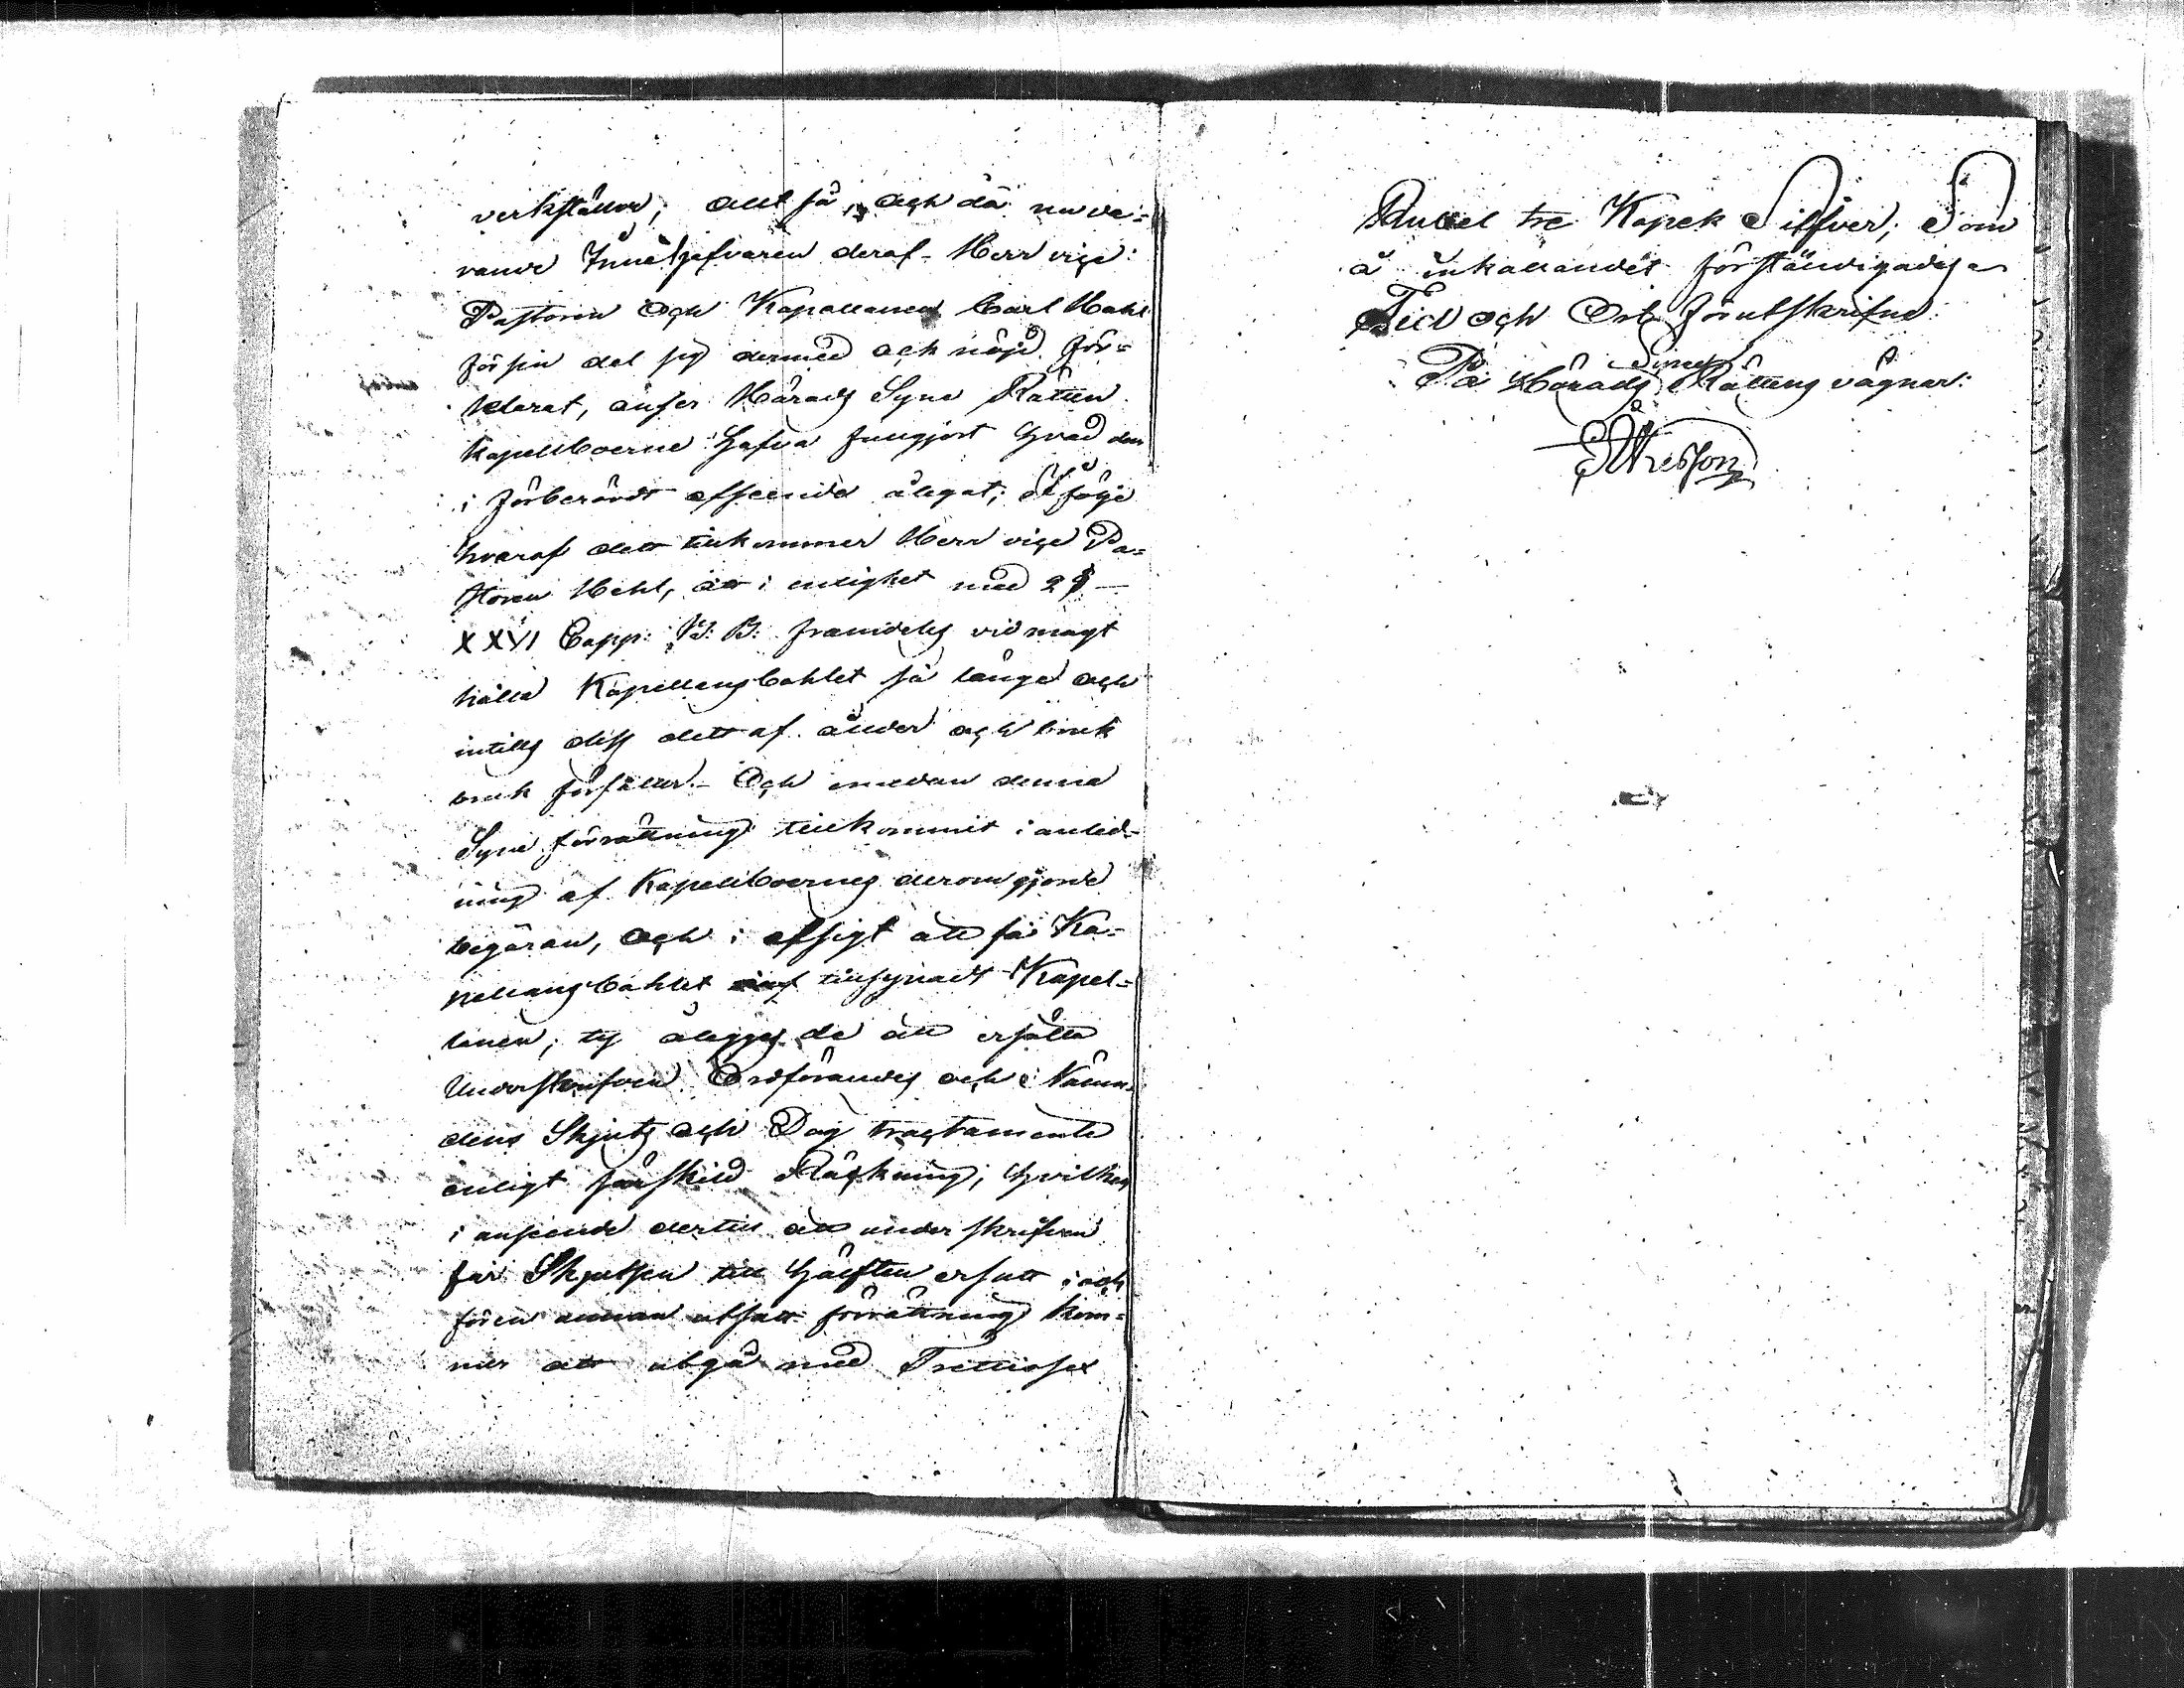 verkställer; altså, och då nuva-
rande Innehafvaren deraf Herr vice
Pastoren och Kapellanen Carl Hahl
för sin del sig dermed och nöjd för-
klarat, anser Härads Syne Rätten
Kapellboerne hafva fullgjort hvad dem
i förberörde afseende ålegat; i följe
hvaraf det tillkommer Herr vice Pa-
storn Hahl, att i enlighet med 2 §
XXVI Capp: B: B: framdeles vid magt
hålla Kapellansbohlet så länge och
intills dess dett af ålder och bruk
bruk förfaller. Och emedan denna
Syne förrättning tillkommit i anled-
ning af Kapellboernes derom gjorde
begäran, och i afsigt att få Ka-
pellansbohlet tillsynadt Kapel-
lanen; ty åläggas de att ersätta
Underskrifven Ordförandes och Nämn-
dens Skjuts och Dag tractamente
enligt särskild Räckning; hvilken
i anseende dertill att underskrifven
får Skjutsen till hälften ersatt i och
för en annan utsatt förrättning kom-
mer att utgå med Trettiosex
Rubel tre Kopek Silfver; Som
å inkallandet förständigades
Tid och Ort förutskrifne
På Härads Syne Rättens vägnar: